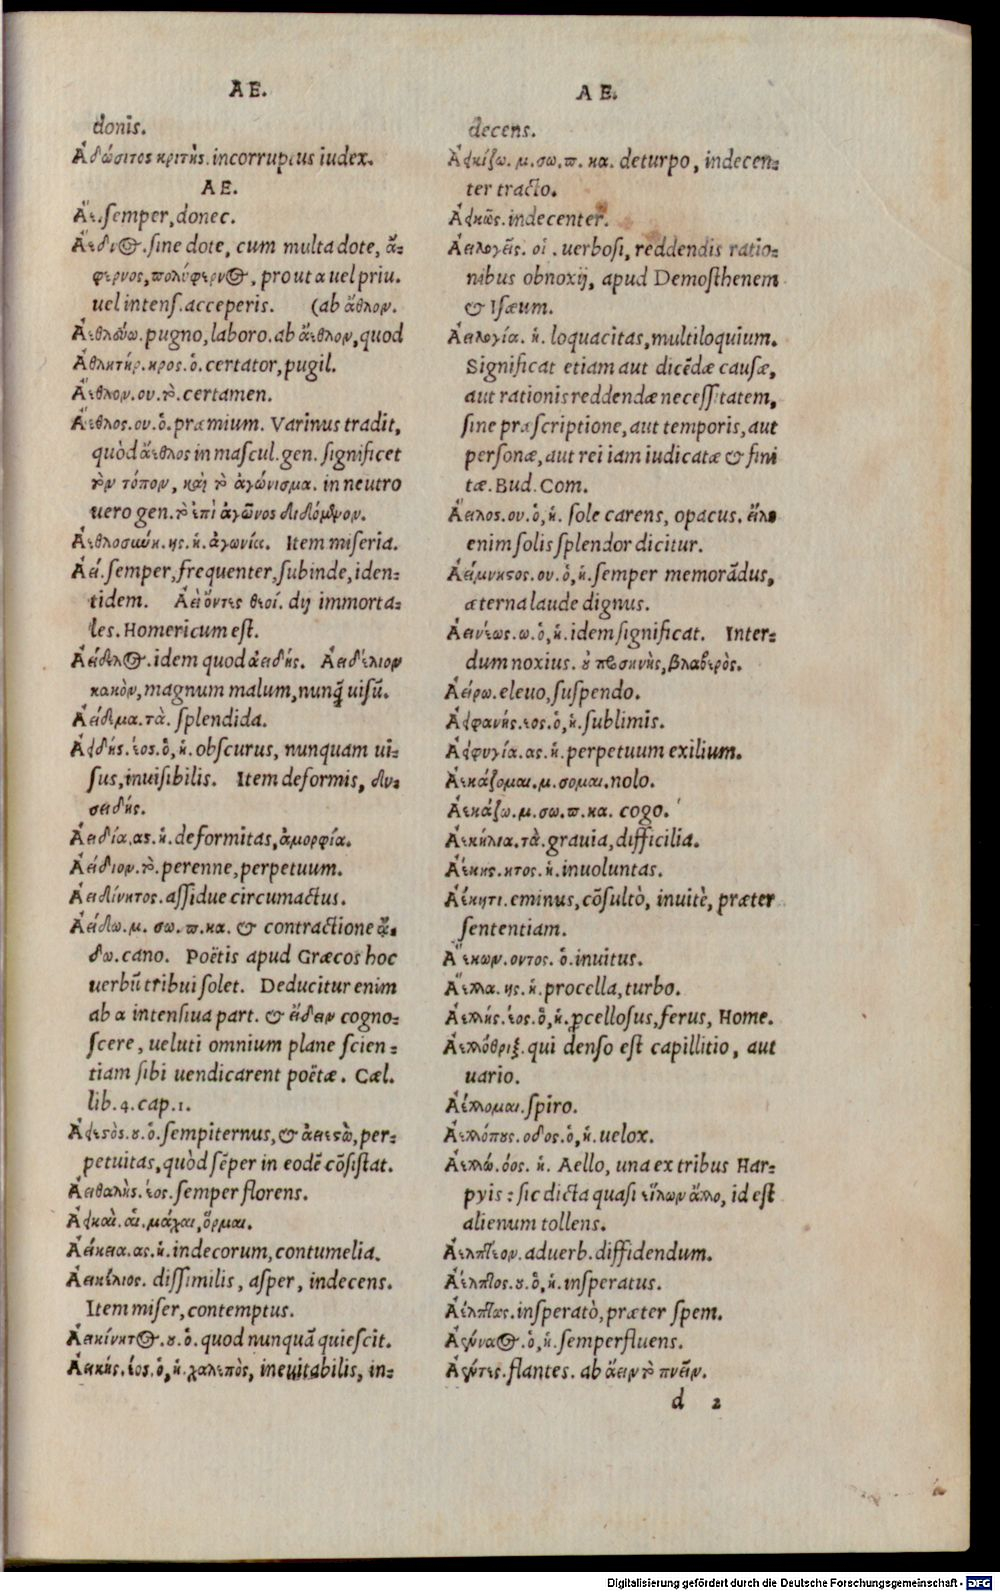 AE.
donis.
Ἀδώσιτος κριτὴς. incorruptus iudex.
AE.
Ἄε. semper, donec.
Ἄεδνος. sine dote, cum multa dote, ἄ-
φερνος, πολύφερνος, prout α uel priu.
uel intens. acceperis. (ab ἄθλον.
Ἀεθλεύω. pugno, laboro. ab ἄεθλον, quod
Ἀθλητήρ. ηρος. ὁ. certator, pugil.
Ἄεθλον. ου. τὸ. certamen.
Ἄεθλος. ου. ὁ. præmium. Varinus tradit,
quòd ἄεθλος in mascul. gen. significet
τὸν τόπον, καὶ τὸ ἀγώνισμα. in neutro
uero gen. τὸ ἐπὶ ἀγῶνος διδόμενον.
Ἀεθλοσύνη. ης. ἡ. ἀγωνία. Item miseria.
Ἀεί. semper, frequenter, subinde, iden-
tidem. Ἀεὶ ὄντες θεοί. dij immorta-
les. Homericum est.
Ἀείδελος. idem quod ἀειδής. Ἀειδέλιον
κακὸν, magnum malum, nunq̃ uisũ.
Ἀείδεμα. τὰ. splendida.
Ἀειδής. έος. ὁ, ἡ. obscurus, nunquam ui-
sus, inuisibilis. Item deformis, δυ-
σειδής.
Ἀειδία. ας. ἡ. deformitas, ἀμορφία.
Ἀείδιον. τὸ. perenne, perpetuum.
Ἀειδίνητος. assidue circumactus.
Ἀείδω. μ. σω. π. κα. & contractione ᾄ-
δω. cano. Poëtis apud Græcos hoc
uerbũ tribui solet. Deducitur enim
ab α intensiua part. & εἴδειν cogno-
scere, ueluti omnium plane scien-
tiam sibi uendicarent poëtæ. Cæl.
lib. 4. cap. 1.
Ἀειεστὸς. ου. ὁ. sempiternus, & ἀειεστὼ, per-
petuitas, quòd sẽper in eodẽ cõsistat.
Ἀειθαλὴς. έος. semper florens.
Ἀεικαὶ. αἱ. μάχαι, ὅρμαι.
Ἀείκεια. ας. ἡ. indecorum, contumelia.
Ἀεικέλιος. dissimilis, asper, indecens.
Item miser, contemptus.
Ἀεικίνητος. ου. ὁ. quod nunquã quiescit.
Ἀεικής. έος. ὁ, ἡ. χαλεπὸς, ineuitabilis, in-
AE.
decens.
Ἀεικίζω. μ. σω. π. κα. deturpo, indecen-
ter tracto.
Ἀεικῶς. indecenter.
Ἀειλογεῖς. οἱ. uerbosi, reddendis ratio-
nibus obnoxij, apud Demosthenem
& Isæum.
Ἀειλογία. ἡ. loquacitas, multiloquium.
Significat etiam aut dicẽdæ causæ,
aut rationis reddendæ necessitatem,
sine præscriptione, aut temporis, aut
personæ, aut rei iam iudicatæ & fini
tæ. Bud. Com.
Ἄειλος. ου. ὁ, ἡ. sole carens, opacus. εἵλη
enim solis splendor dicitur.
Ἀείμνηστος. ου. ὁ, ἡ. semper memorãdus,
æterna laude dignus.
Ἀεινέως. ω. ὁ, ἡ. idem significat. Inter-
dum noxius. ὁ προσηνὴς, βλαβερὸς.
Ἀείρω. eleuo, suspendo.
Ἀειφανής. έος. ὁ, ἡ. sublimis.
Ἀειφυγία. ας. ἡ. perpetuum exilium.
Ἀεκάζομαι. μ. σομαι. nolo.
Ἀεκάζω. μ. σω. π. κα. cogo.
Ἀεκήλια. τὰ. grauia, difficilia.
Ἀέκης. ητος. ἡ. inuoluntas.
Ἀέκητι. eminus, cõsultò, inuitè, præter
sententiam.
Ἀέκων. οντος. ὁ. inuitus.
Ἄελλα. ης. ἡ. procella, turbo.
Ἀελλής. έος. ὁ, ἡ. ꝓcellosus, ferus, Home.
Ἀελλόθριξ. qui denso est capillitio, aut
uario.
Ἀέλλομαι. spiro.
Ἀελλόπους. οδος. ὁ, ἡ. uelox.
Ἀελλώ. όος. ἡ. Aello, una ex tribus Har-
pyis: sic dicta quasi ἑλὼν ἄλλο, id est
alienum tollens.
Ἀελπτέον. aduerb. diffidendum.
Ἄελπτος. ου. ὁ, ἡ. insperatus.
Ἀέλπτως. insperatò, præter spem.
Ἀέναος. ὁ, ἡ. semperfluens.
Ἀέντες. flantes. ab ἄειν τὸ πνεῖν.
d 2
Digitalisierung gefördert durch die Deutsche Forschungsgemeinschaft - DFG